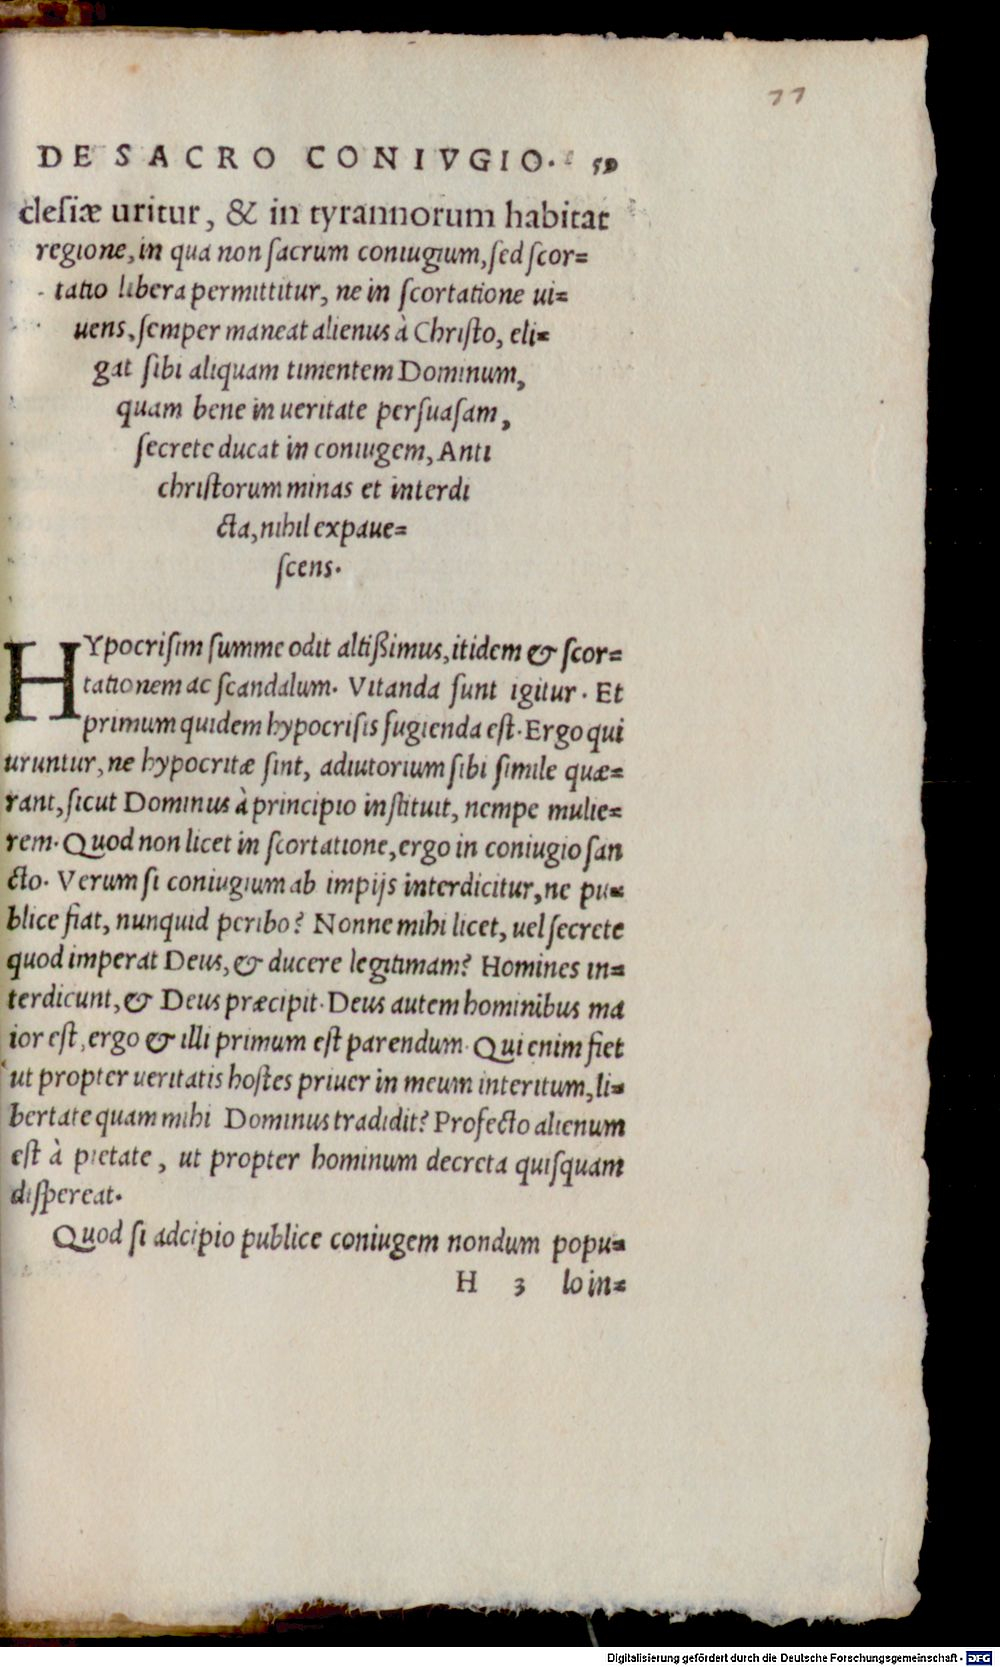 77
DE SACRO CONIVGIO. 59
clesiæ uritur, & in tyrannorum habitat
regione, in qua non ſacrum coniugium, ſed ſcor=
tatio libera permittitur, ne in ſcortatione ui=
uens, ſemper maneat alienus à Chriſto, eli=
gat ſibi aliquam timentem Dominum,
quam bene in ueritate perſuaſam,
ſecrete ducat in coniugem, Anti
chriſtorum minas et interdi
cta, nihil expaue=
ſcens.
HYpocriſim ſumme odit altißimus, itidem & ſcor=
tationem ac ſcandalum. Vitanda ſunt igitur. Et
primum quidem hypocriſis fugienda eſt. Ergo qui
uruntur, ne hypocritæ ſint, adiutorium ſibi ſimile quæ=
rant, ſicut Dominus à principio inſtituit, nempe mulie=
rem. Quod non licet in ſcortatione, ergo in coniugio ſan
cto. Verum ſi coniugium ab impijs interdicitur, ne pu=
blice fiat, nunquid peribo? Nonne mihi licet, uel ſecrete
quod imperat Deus, & ducere legitimam? Homines in=
terdicunt, & Deus præcipit. Deus autem hominibus ma
ior eſt, ergo & illi primum eſt parendum. Qui enim fiet
ut propter ueritatis hoſtes priuer in meum interitum, li=
bertate quam mihi Dominus tradidit? Profecto alienum
eſt à pietate, ut propter hominum decreta quiſquam
diſpereat.
Quod ſi adcipio publice coniugem nondum popu=
H 3 lo in=
Digitalisierung gefördert durch die Deutsche Forschungsgemeinschaft - DFG